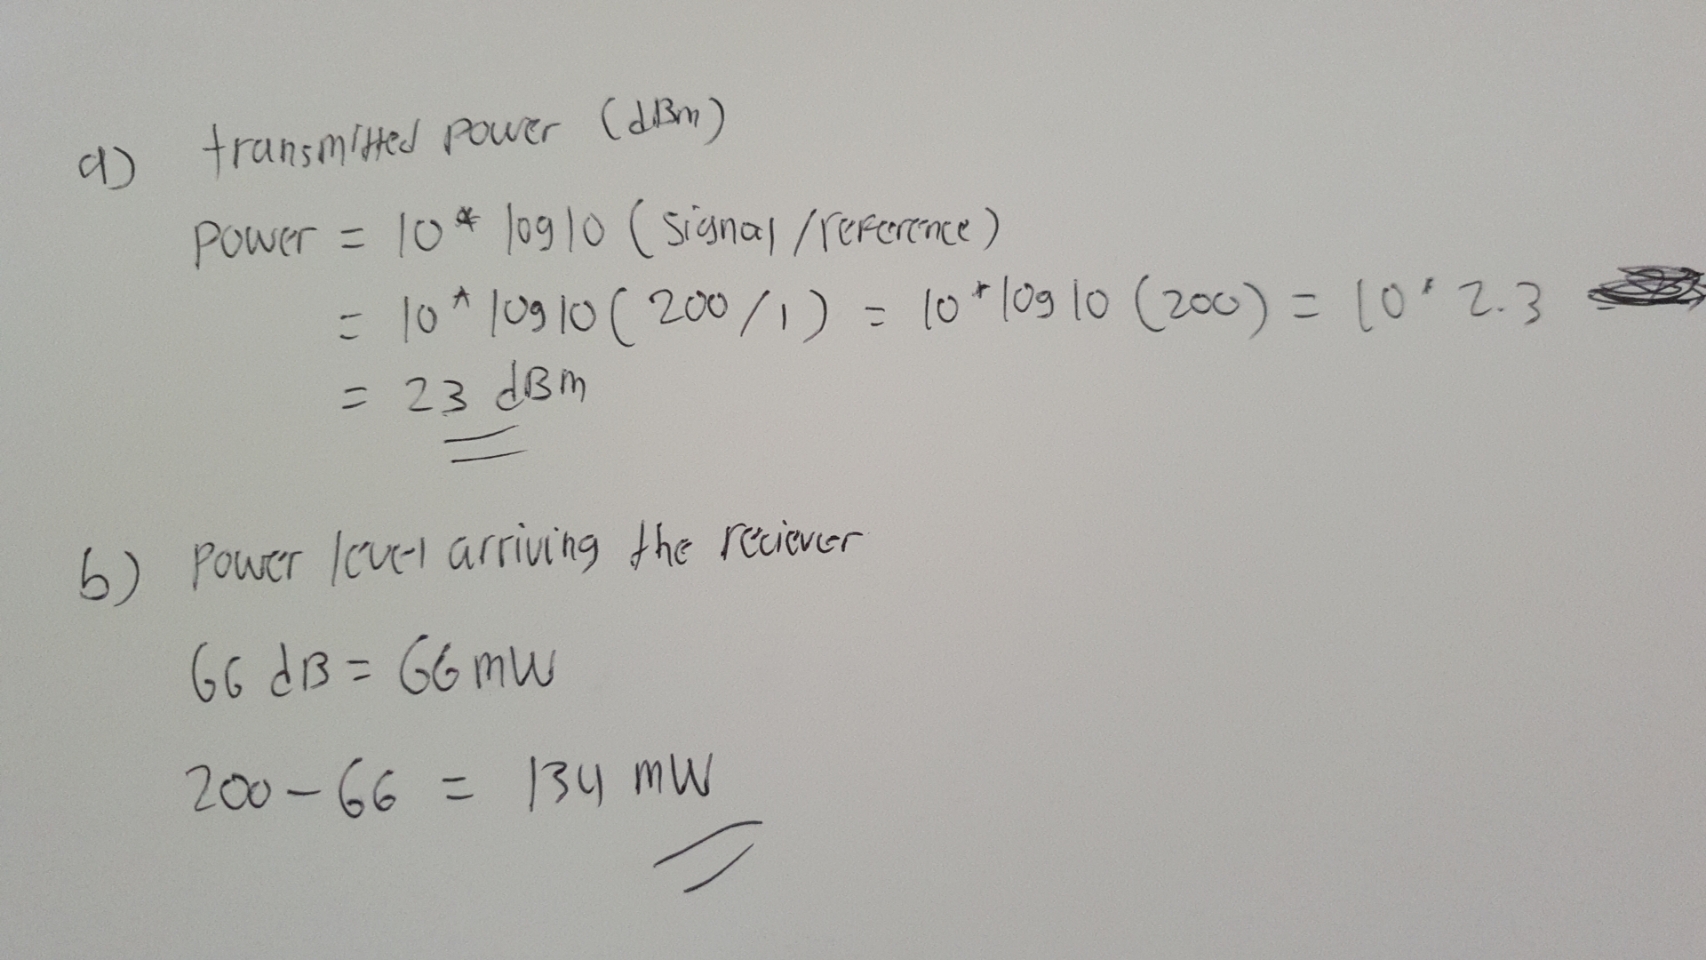 a) transmitted power (dBm)
power = 10 * log10 (signal/reference)
= 10 * log10 (200/1) = 10 * log10 (200) = 10 * 2.3
= 23 dBm
b) power level arriving the reciever
66 dB = 66 mW
200 - 66 = 134 mW